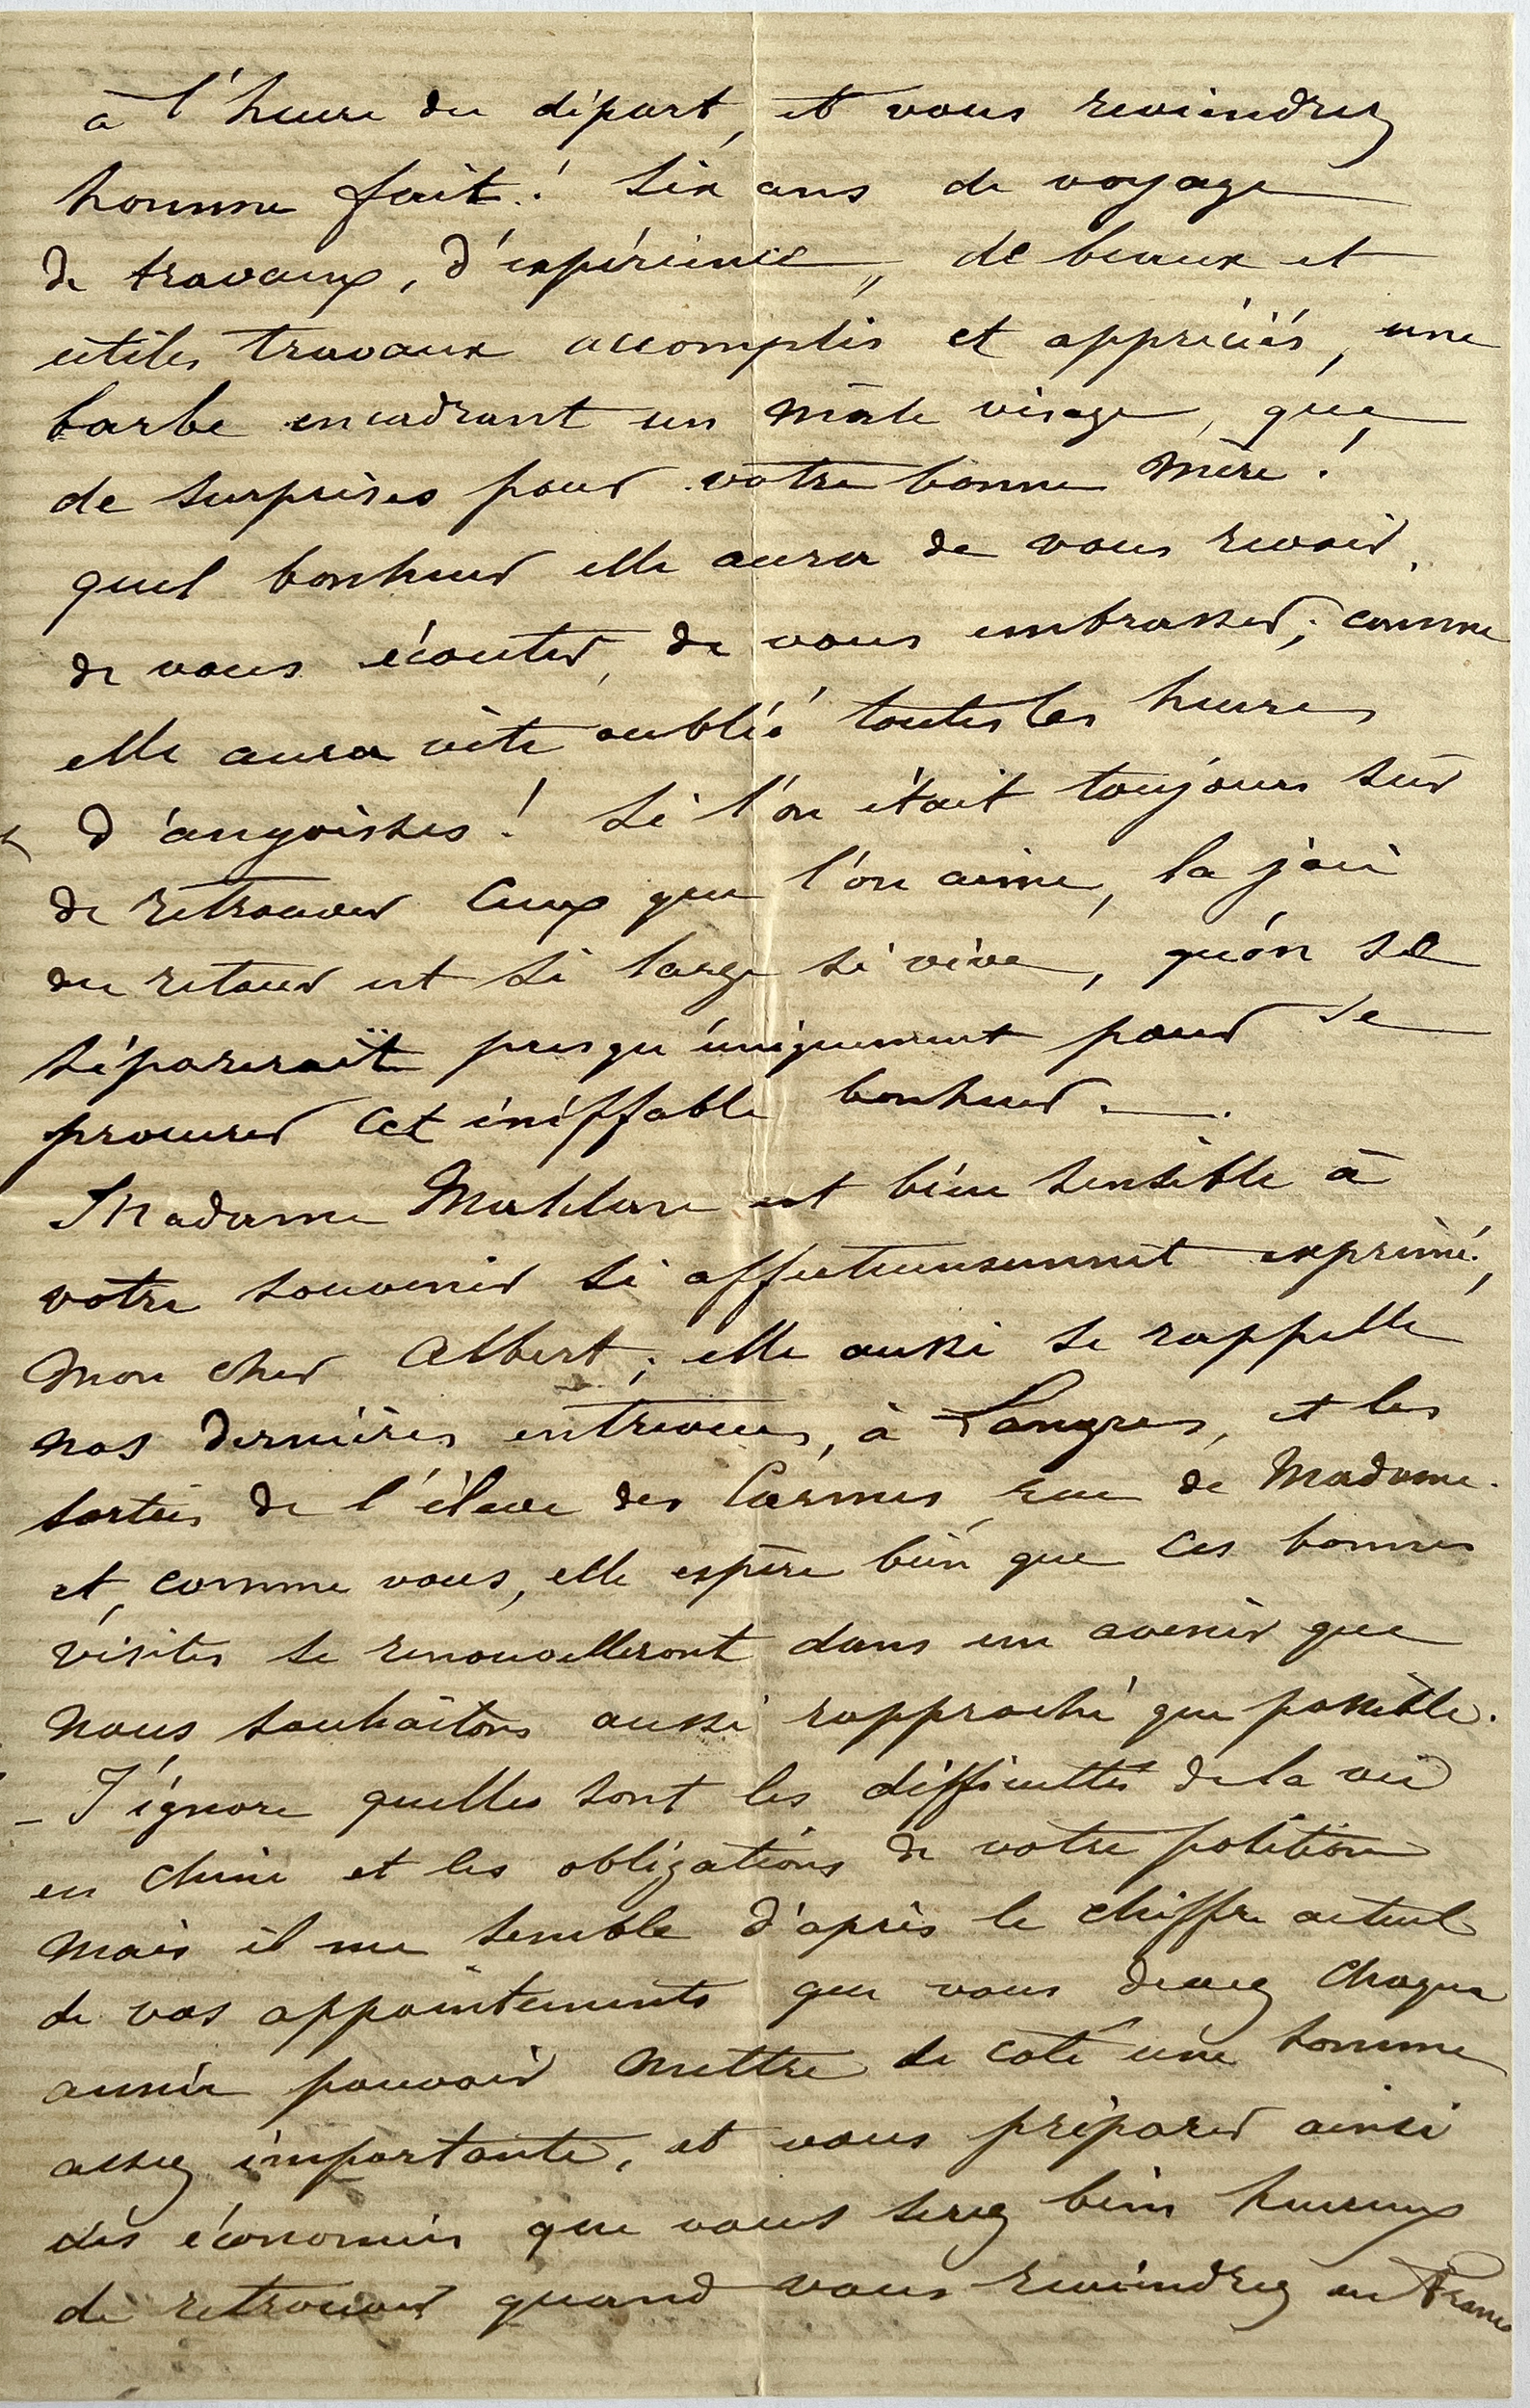 à l'heure du départ, et vous reviendrez
homme fait! Six ans de voyage
de travaux, d'expérience, de beaux et
utiles travaux accomplis et appréciés, une
barbe encadrant un mâle visage, que
de surprises pour votre bonne mère!
quel bonheur elle aura de vous revoir,
de vous écouter, de vous embrasser; comme
elle aura vite oublié toutes les heures
d'angoisses! Si l'on était toujours sûr
de retrouver ceux que l'on aime, la joie
du retour est si large si vive, qu'on se
séparerait presqu'uniquement pour se
procurer cet ineffable bonheur. —.
Madame est bien sensible à
votre souvenir si affectueusement exprimé,
mon cher Albert; elle aussi se rappelle
nos dernières entrevues, à Langres, et les
sorties de l'élève des Carmes, rue de Madame.
et, comme vous, elle espère bien que ces bonnes
visites se renouvelleront dans un avenir que
nous souhaitons aussi rapproché que possible.
– J'ignore quelles sont les difficultés de la vie
en Chine et les obligations de votre position
mais il me semble d'après le chiffre actuel
de vos appointements que vous devez chaque
année pouvoir mettre de côté une somme
assez importante, et vous préparer ainsi
des économies que vous serez bien heureux
de retrouver quand vous reviendrez en France